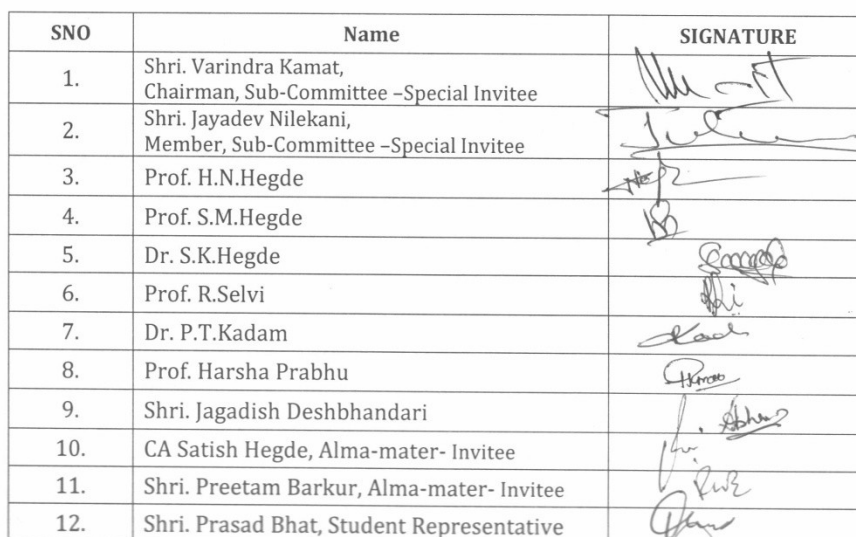 SNO Name SIGNATURE
1. Shri. Varindra Kamat,
Chairman, Sub-Committee –Special Invitee
2. Shri. Jayadev Nilekani,
Member, Sub-Committee –Special Invitee
3. Prof. H.N.Hegde
4. Prof. S.M.Hegde
5. Dr. S.K.Hegde
6. Prof. R.Selvi
7. Dr. P.T.Kadam
8. Prof. Harsha Prabhu
9. Shri. Jagadish Deshbhandari
10. CA Satish Hegde, Alma-mater- Invitee
11. Shri. Preetam Barkur, Alma-mater- Invitee
12. Shri. Prasad Bhat, Student Representative